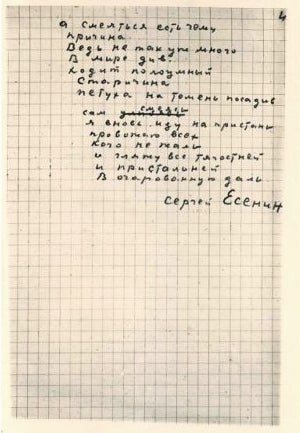 4
а смеяться есть чему
причина
Ведь не так уж много
В мире див.
Ходит полоумный
Старичина
петуха на темень посадив
сам смеясь
я вновь иду на пристань
провожаю всех
Кого не жаль
и гляжу все тягостней
и пристальней
В очарованную даль.
Сергей Есенин